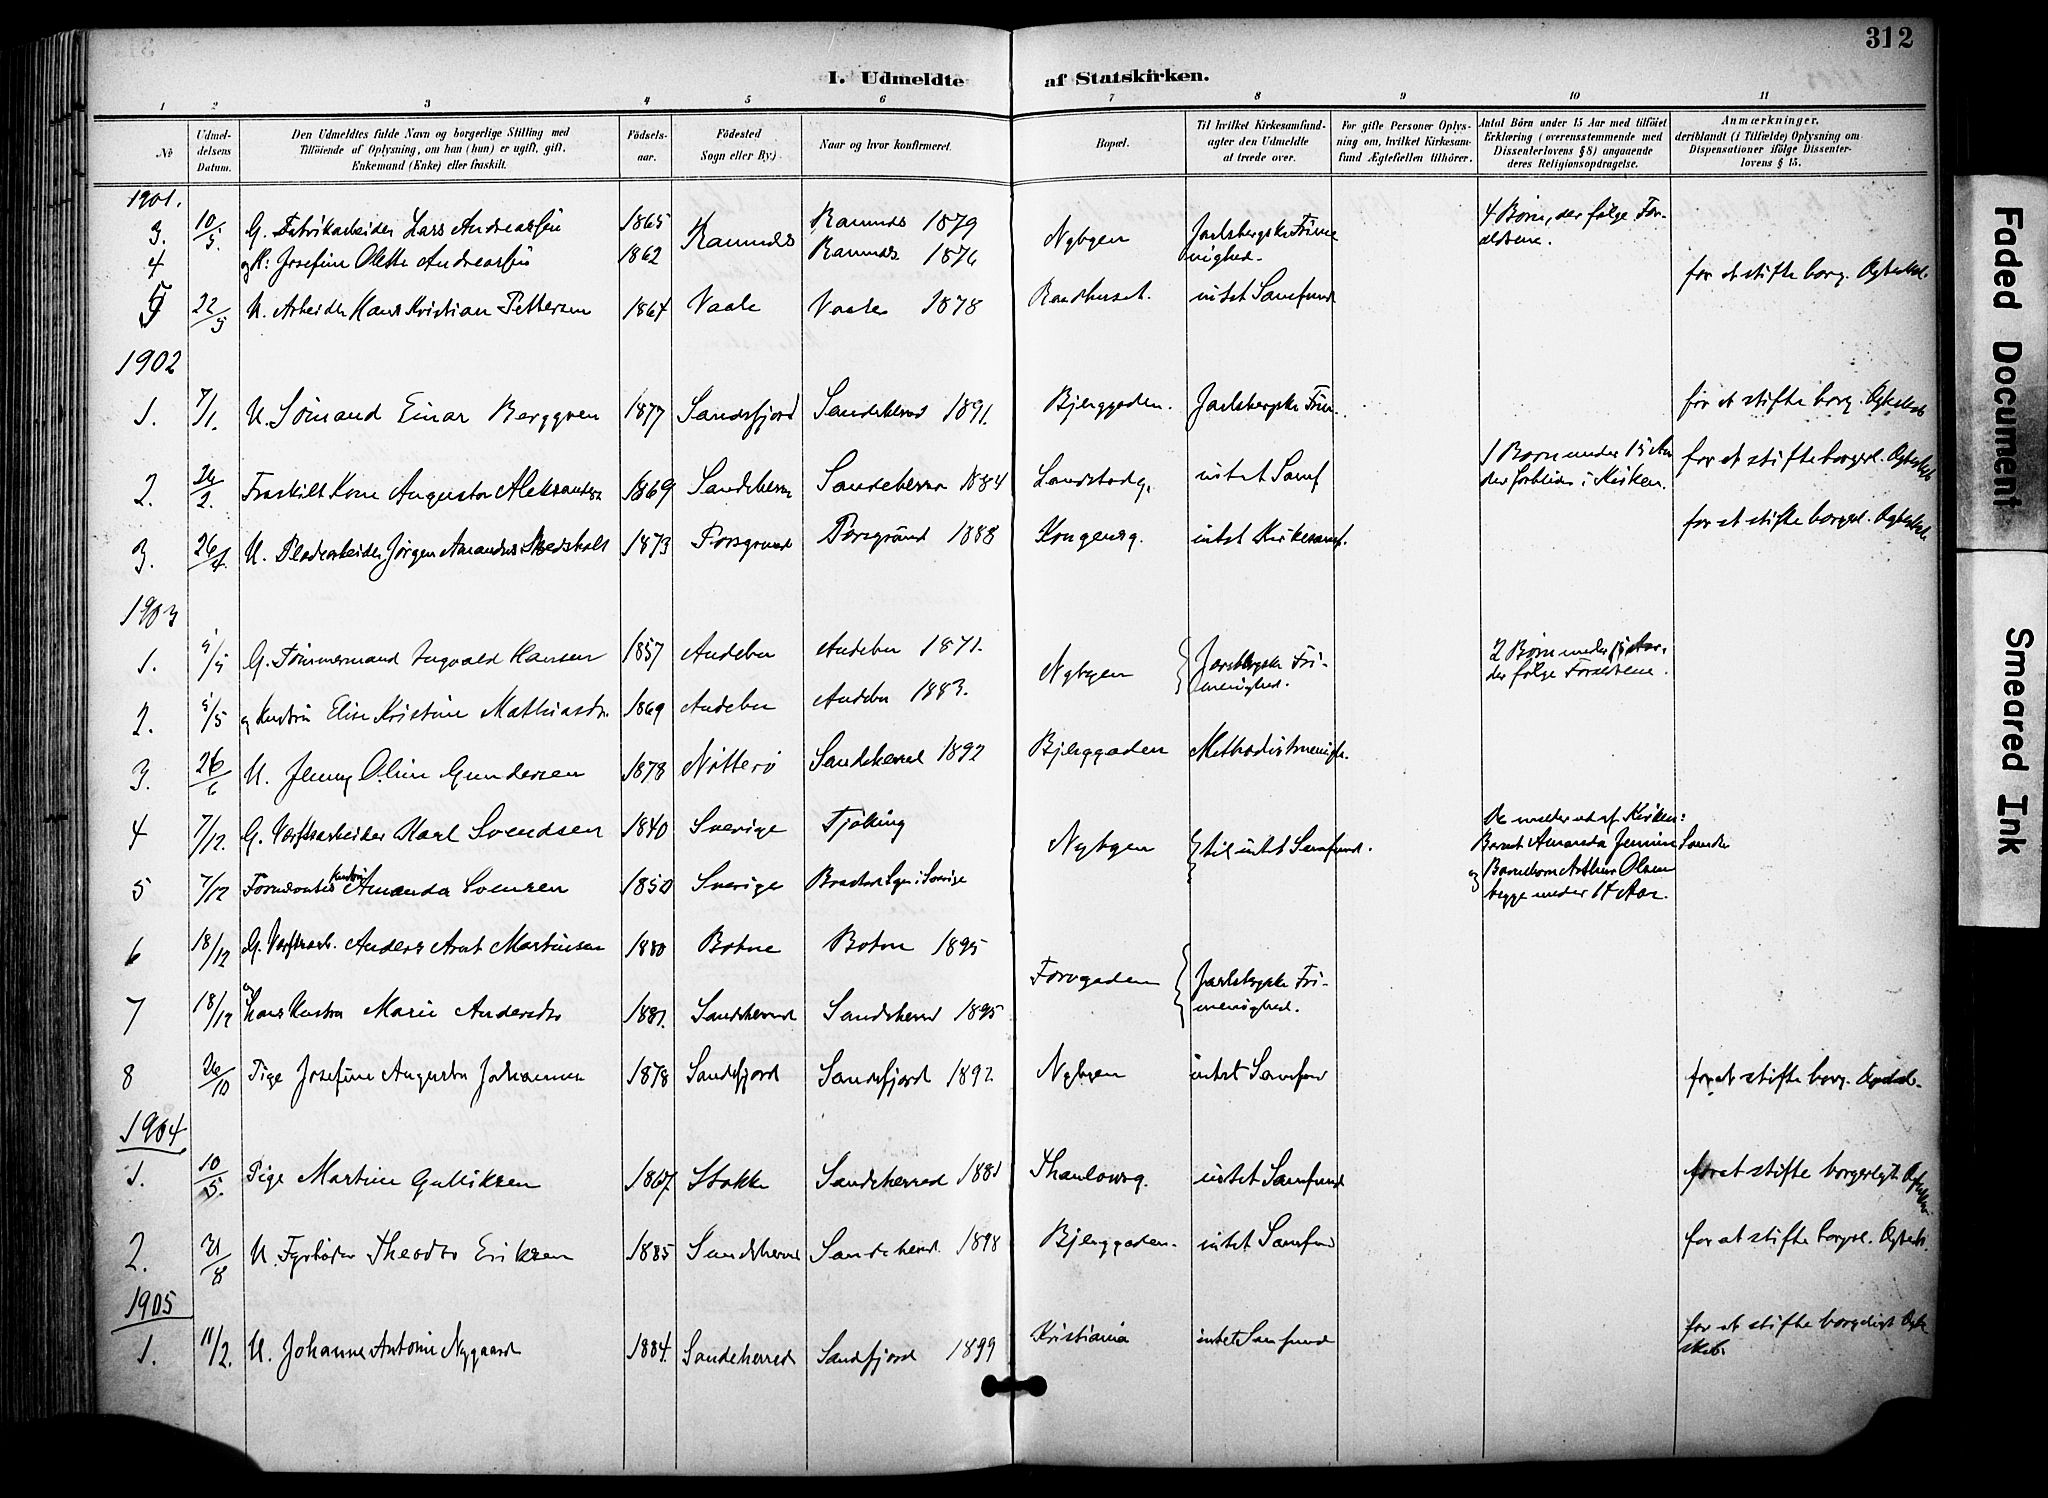 312
I. Udmeldte af Statskirken.
1 2 3 4 5 6 7 8 9 10 11
No
Udmel-
delsens
Datum.
Den Udmeldtes fulde Navn og borgerlige Stilling med
Tilføiende af Oplysning, om han (hun) er ugift, gift,
Enkemand (Enke) eller fraskilt.
Fødsels-
aar.
Fødested
Sogn eller By)
Naar og hvor konfirmeret.
Bopæl.
Til hvilket Kirkesamfund
agter den Udmeldte
at træde over.
For gifte Personer Oplys-
ning om, hvilket Kirkesam-
fund Ægtefællen tilhører.
Antal Børn under 15 Aar med tilføiet
Erklæring (overensstemmende med
Dissenterlovens § 8) angaaende
deres Religionsopdragelse.
Anmærkninger,
deriblandt (i Tilfælde) Oplysning om
Dispensationer ifølge Dissenter-
lovens § 15.
1901.
3. 10/5. G. Fabrikarbeider Lars Andreassen 1865 Ramnes Ramnes 1879 Nybyen Jarlsbergske Frime
nighed. 4 Børn, der følge For-
ældrene.
4 og H: Josefine Olette Andreassen 1862 Ramnes 1876
5 22/5 U. Arbeider Hans Kristian Pettersen 1864 Vaale Vaale 1878 intet Samfund for at stifte borg. Ægteskab.
1902
1. 7/1. U. Sømand Einar Berggren 1877 Sandefjord Sandeherred 1891. Bjerggaden. Jarlsbergske Frim. for at stifte borg. Ægteskab
2. 26/2. Fraskilt Kone Augusta Aleksandersen 1869 Sandeherred Sandeherred 1884 Landstadg. intet Samf 1 Barn under 15 Aar
der forbliver i Kirken. for at stifte borgerl. Ægteskab
3. 26/4. U. Pladearbeider Jørgen Amandus 1873 Porsgrund Porsgrund 1888 Kongensg. intet Kirkesamf. for at stifte borgerl. Ægteskab.
1903
1. 5/5 G. Tømmermand Ingvald Hansen 1857 Andebu Andebu 1871. Nybyen Jarlsbergske Fri-
menighed. 2 Børn under 15 Aar,
der følge Forældrene.
2. 5/5 og Hustru Elise Kristine Mathiasdtr. 1869 Andebu Andebu 1883.
3. 26/6 U. Jenny Oline Gundersen 1878 Nøtterø Sandeherred 1892 Bjerggaden Methodistmenigh.
4 7/12. G. Værftsarbeider Karl Svendsen 1840 Sverige Tjølling Nybyen til intet Samfund. De melder ud af Kirken:
Barnet Amanda Jennine Svendsen
5 7/12 Amanda Svensen 1850 Sverige i Sverige og Barnebarn Arthur Olsen
begge under 14 Aar.
6 18/12 G. Værftsarb. Anders Arnt Martinsen 1880 Botne Botne 1895 Torvgaden Jarlsbergske Fri-
menighed.
7 18/12 og Hans Hustru Marie Andersdtr 1881. Sandeherred Sandeherred 1895
8 26/10 Pige Josefine Augusta Johannesen 1878 Sandefjord Sandefjord 1892 Nybyen intet Samfund for at stifte borg. Ægtesk.
1904
1. 10/5. Pige Martine Gulliksen 1867. Stokke Sandeherred 1881 Thaulowsg. intet Samfund for at stifte borgerligt Ægteskab
2. 31/8 U. Fyrbøder Theodor Eriksen 1885 Sandeherred Sandeherred. 1898 Bjerggaden. intet Samfund for at stifte borgerl. Ægtesk.
1905
1. 11/2. U. Johanne Antonie Nygaard 1884. Sandeherred Sandefjord 1899 Kristiania intet Samfund for at stifte borgerligt Ægte
skab.
Faded Document
Smeared Ink